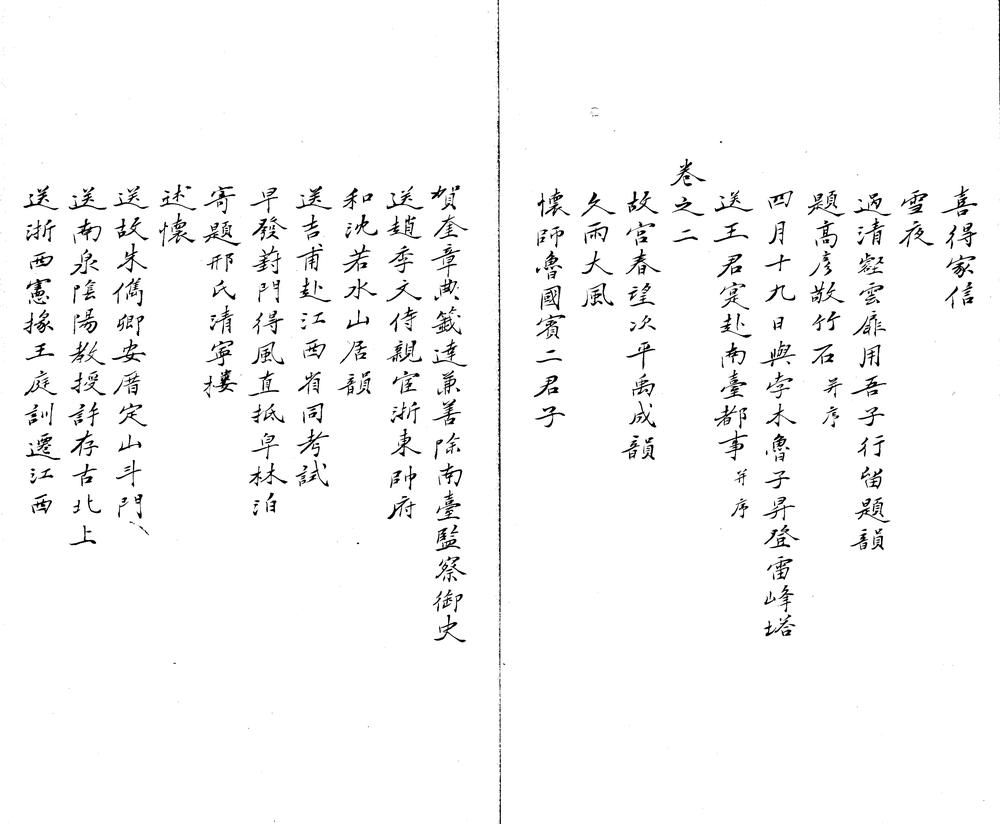 喜得家信
雪夜
過清壑雲扉用吾子行留題韻
題高彥敬竹石并序
四月十九日與孛术魯子昇登雷峰塔
送王君寔赴南臺都事并序
卷之二
故宮春望次平禹成韻
久雨大風
懷師魯國賓二君子
賀奎章典籤達兼善除南臺監察御史
送趙季文侍親宦浙東帥府
和沈若水山居韻
送吉甫赴江西省同考試
早發葑門得風直抵皁林泊
寄題邢氏清寧樓
述懷
送故朱儁卿安厝定山斗門
送南泉陰陽教授許存古北上
送浙西憲掾王庭訓遷江西